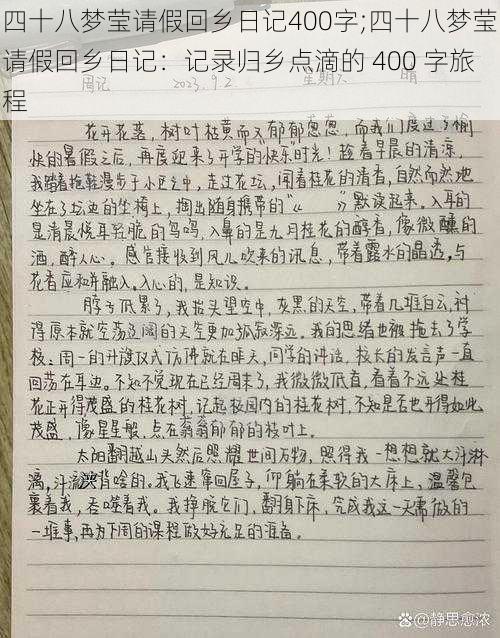 四十八梦莹请假回乡日记400字;四十八梦莹
请假回乡日记：记录归乡点滴的 400 字旅
程
周记 2023.9.2 星期六 晴
花开花落，树叶枯黄而又郁郁葱葱，而我们度过了愉
快的暑假之后，再度迎来了开学的快乐时光！趁着早晨的清凉，
我踏着拖鞋漫步于小区之中，走过花坛，闻着桂花的清香，自然而然地
坐在了坛边的坐椅上，掏出随身携带的“《 》”默读起来。入耳的
是清晨悦耳轻脆的鸟鸣，入鼻的是九月桂花的醇香，像微醺的
酒，醉人心。感官接收到风儿吹来的讯息，带着露水的晶透，与
花香应和并融入。入心的，是知识。
脖子低累了，我抬头望空中，灰黑的天空，带着几堆白云，衬
得原本就空荡辽阔的天空更加孤寂深远。我的思绪也被拖去了学
校：周一的升旗仪式仿佛就在昨天，同学的讲话，校长的发言声一直
回荡在耳边。不知不觉现在已经周末了，我微微低首，看着不远处桂
花正开得茂盛的桂花树，记起校园内的桂花树，不知是否也开得如此
茂盛，像星星般，点在蓊蓊郁郁的枝叶上。
太阳翻越山头然后照耀世间万物，照得我一想想就大汗淋
漓，汗流浃背啥的。我飞速窜回屋子，仰躺在柔软的大床上，温馨包
裹着我，吞噬着我。我挣脱它们，翻身下床，完成我这一天需做的
一堆事，再为下周的课程做好充足的准备。
@静思愈浓